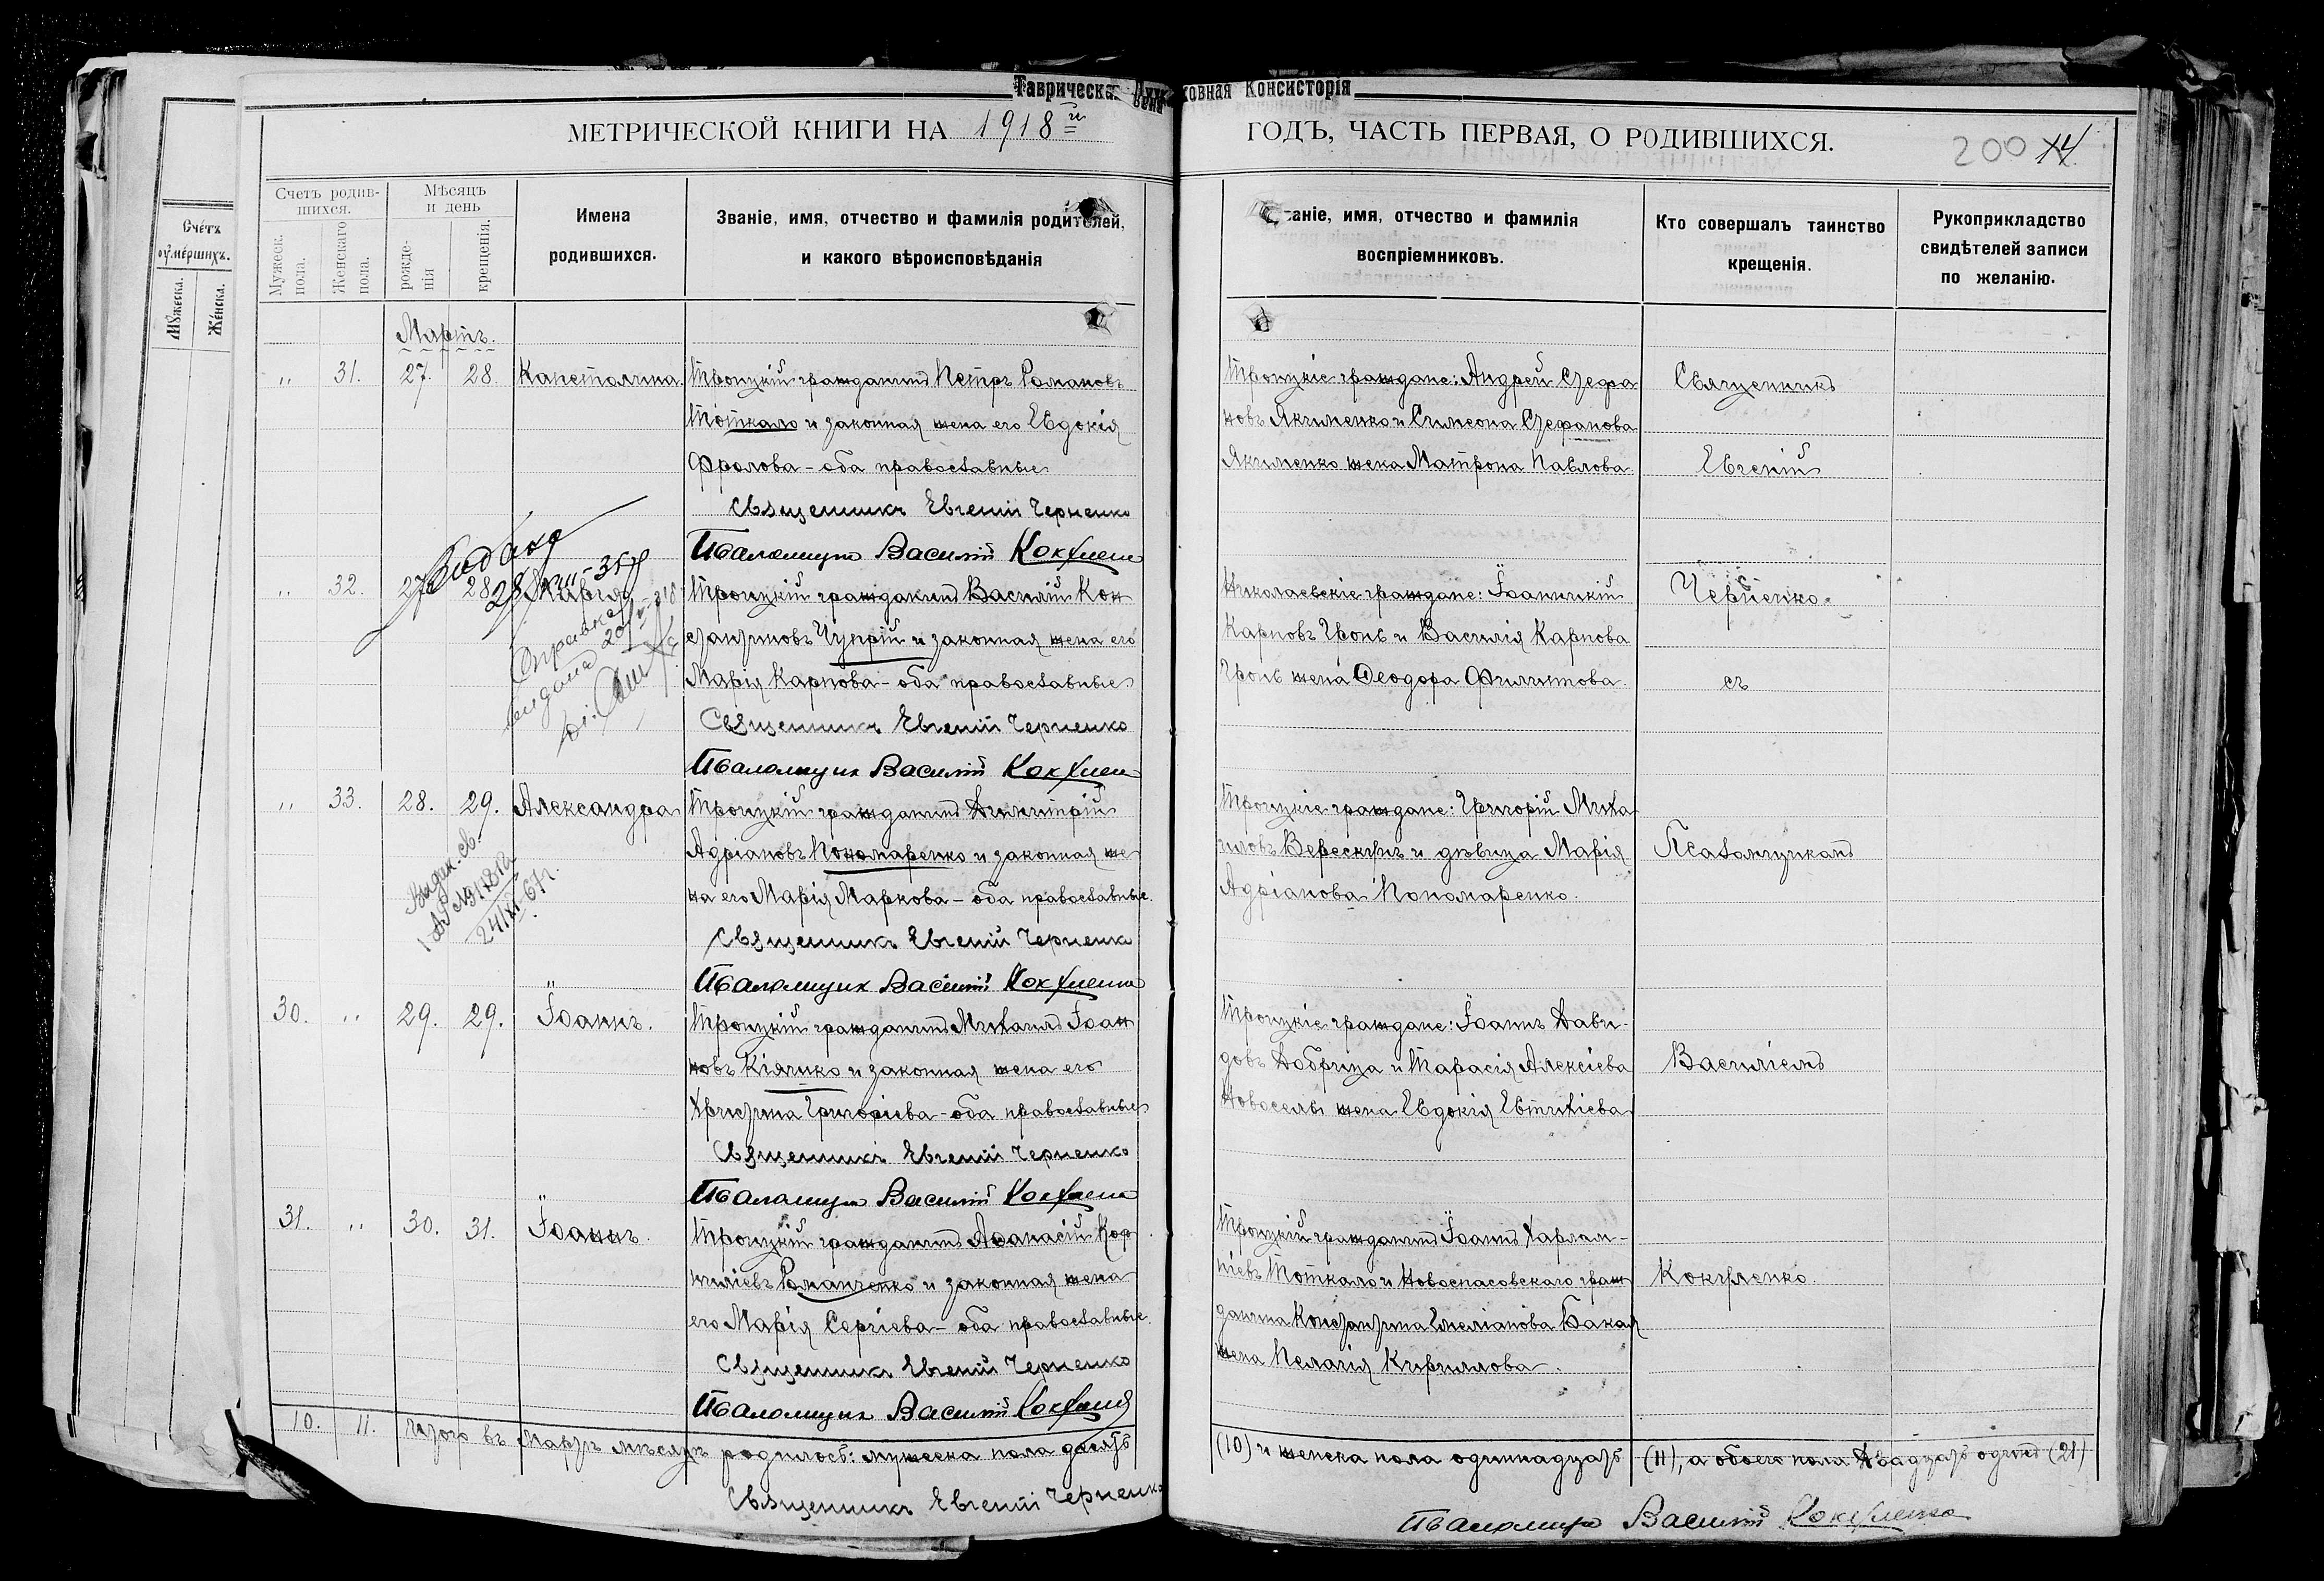 Таврическая Духовная Консисторія
МЕТРИЧЕСКОЙ КНИГИ НА 1918й ГОДЪ, ЧАСТЬ ПЕРВАЯ, О РОДИВШИХСЯ.
200
Счетъ умершихъ.
Мужеска.
Женска.
Счетъ родив-
шихся.
Мужеск. пола.
Женскаго пола.
Мѣсяцъ
и день
рожде-
нія
крещенія.
Имена
родившихся.
Званіе, имя, отчество и фамилія родителей,
и какого вѣроисповѣданія
Званіе, имя, отчество и фамилія
воспріемниковъ.
Кто совершалъ таинство
крещенія.
Рукоприкладство
свидѣтелей записи
по желанію.
Мартъ.
" 31. 27. 28. Капетолина. Троицкій гражданинъ Петръ Романовъ
Тоткало и законная жена его Евдокія
Фролова - оба православные
Священникъ Евгеній Черненко
Псаломщикъ Василій Кокуленко
Троицкіе граждане: Андрей Стефа
новъ Якименко и Симеона Стефанова
Якименко жена Матрона Павлова.
Священникъ
Евгеній
" 32. 27. 28. Марія Троицкій гражданинъ Василій Кон
стантиновъ Чуприй и законная жена его
Марія Карпова - оба православные
Священникъ Евгеній Черненко
Псаломщикъ Василій
Видано
Справка
выдана
Николаевскіе граждане: Іоанникій
Карповъ Гронь и Василія Карпова
Гронь жена Ѳеодора Филиппова.
Черненко
съ
" 33. 28. 29. Александра Троицкій гражданинъ Димитрій
Адріановъ Пономаренко и законная же
на его Марія Маркова - оба православные.
Священникъ Евгеній Черненко
Псаломщикъ Василій
24/XI-67г.
Троицкіе граждане: Григорій Миха
иловъ Верескунъ и дѣвица Марія
Адріанова Пономаренко.
Псаломщикомъ
30. " 29. 29. Іоаннъ. Троицкій гражданинъ Михаилъ Іоан
новъ Кіяшко и законная жена его
Христина Григоріева - оба православные
Священникъ Евгеній Черненко
Псаломщикъ Василій
Троицкіе граждане: Іоаннъ Дави-
довъ Добрица и Тарасія Алексіева
Новосельв жена Евдокія Евтихіева
Василіемъ
31. " 30. 31. Іоаннъ. Троицкій гражданинъ Аѳанасій Кор
ниліевъ Романченко и законная жена
его Марія Сергіева - оба православные.
Священникъ Евгеній Черненко
Псаломщикъ Василій
Троицкій гражданинъ Іоаннъ Харлам-
піевъ Тоткало и Новоспасовскаго граж
данина Константина Емеліанова Бакая
жена Пелагія Кириллова.
Кокуленко.
10. 11. Итого въ Мартѣ мѣсяцѣ родилось: мужеска пола десять
(10) и женска пола одиннадцать (11), а обоего пола двадцать одинъ (21)
Священникъ Евгеній Черненко
Псаломщикъ Василій Кокуленко